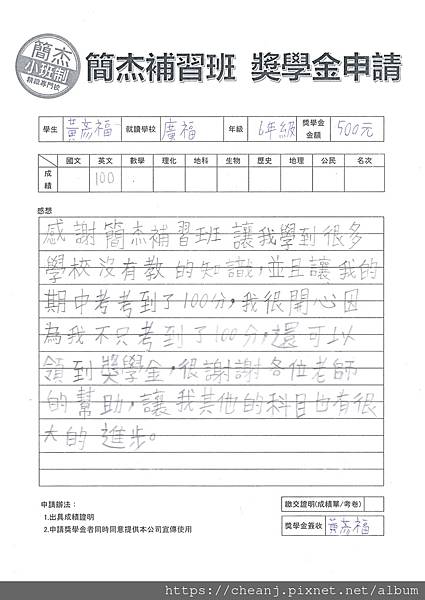 簡杰
小班制
簡杰補習班 獎學金申請
學生 黃彥福 就讀學校 廣福 年級 6年級 獎學金金額 500元
國文 英文 數學 理化 地科 生物 歷史 地理 公民 名次
成績 100
感想
感謝簡杰補習班 讓我學到很多
學校沒有教的知識,並且讓我的
期中考考到了100分,我很開心因
為我不只考到了100分,還可以
領到獎學金,很謝謝各位老師
的幫助,讓我其他的科目也有很
大的進步。
申請辦法:
1.出具成績證明
2.申請獎學金者同時同意提供本公司宣傳使用
繳交證明(成績單/考卷)
獎學金簽收 黃彥福
https://cheanj.pixnet.net/album